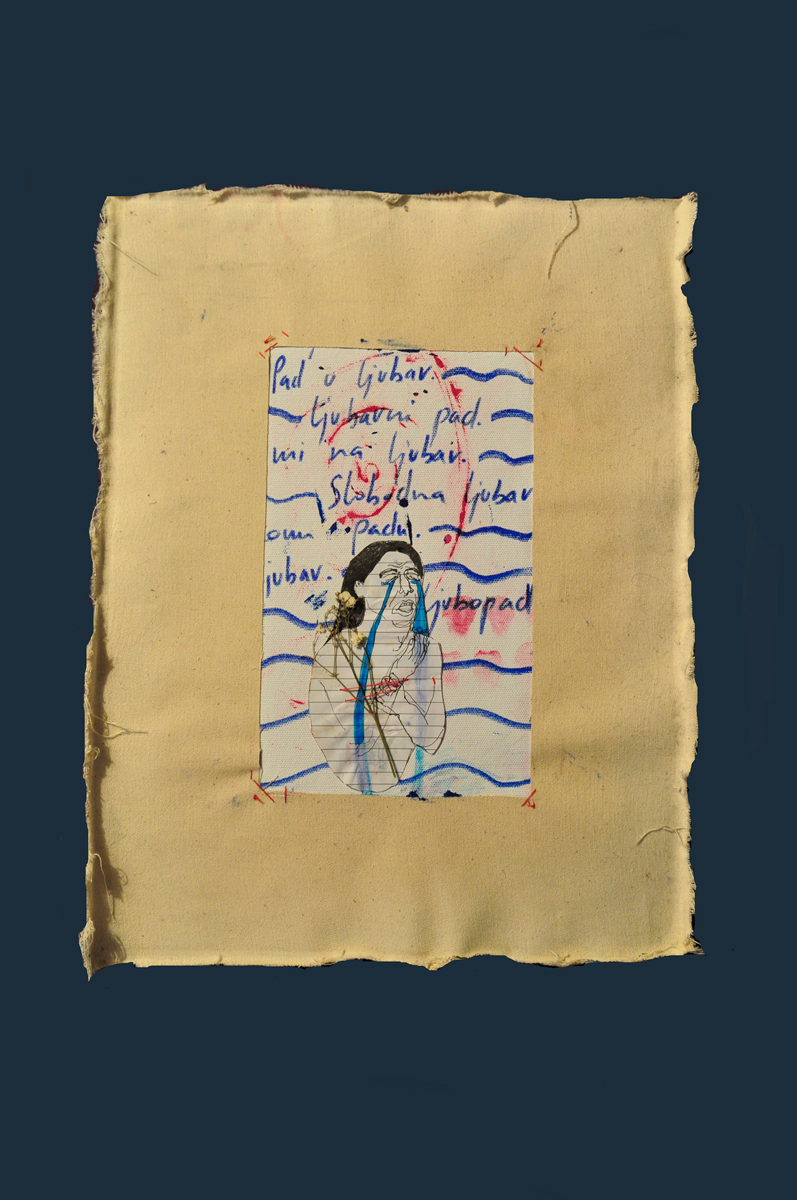 Pad u ljubav.
ljubavni pad.
mi na ljubav.
Slobodna ljubav
omi padu.
jubav.
ljubopad